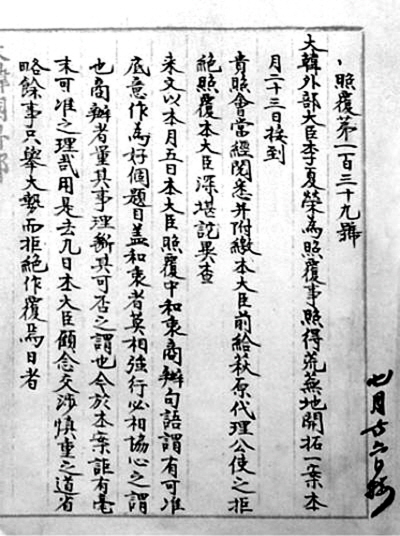 照覆第一百三十九號
大韓外部大臣李夏榮為照覆事照得荒蕪地開拓一案本
月二十三日接到
貴照會當經閱悉并附繳本大臣前給萩原代理公使之拒
絕照覆本大臣深堪詫異查
來文以本月五日本大臣照覆中和衷商辦句語謂有可准
底意作為好個題目盖和衷者莫相強行必相協心之謂
也商辦者量其事理斷其可否之謂也今於本案詎有毫
末可准之理哉用是去九日本大臣顧念交涉慎重之道省
略餘事只舉大槩而拒絕作覆焉日者
七月廿六日